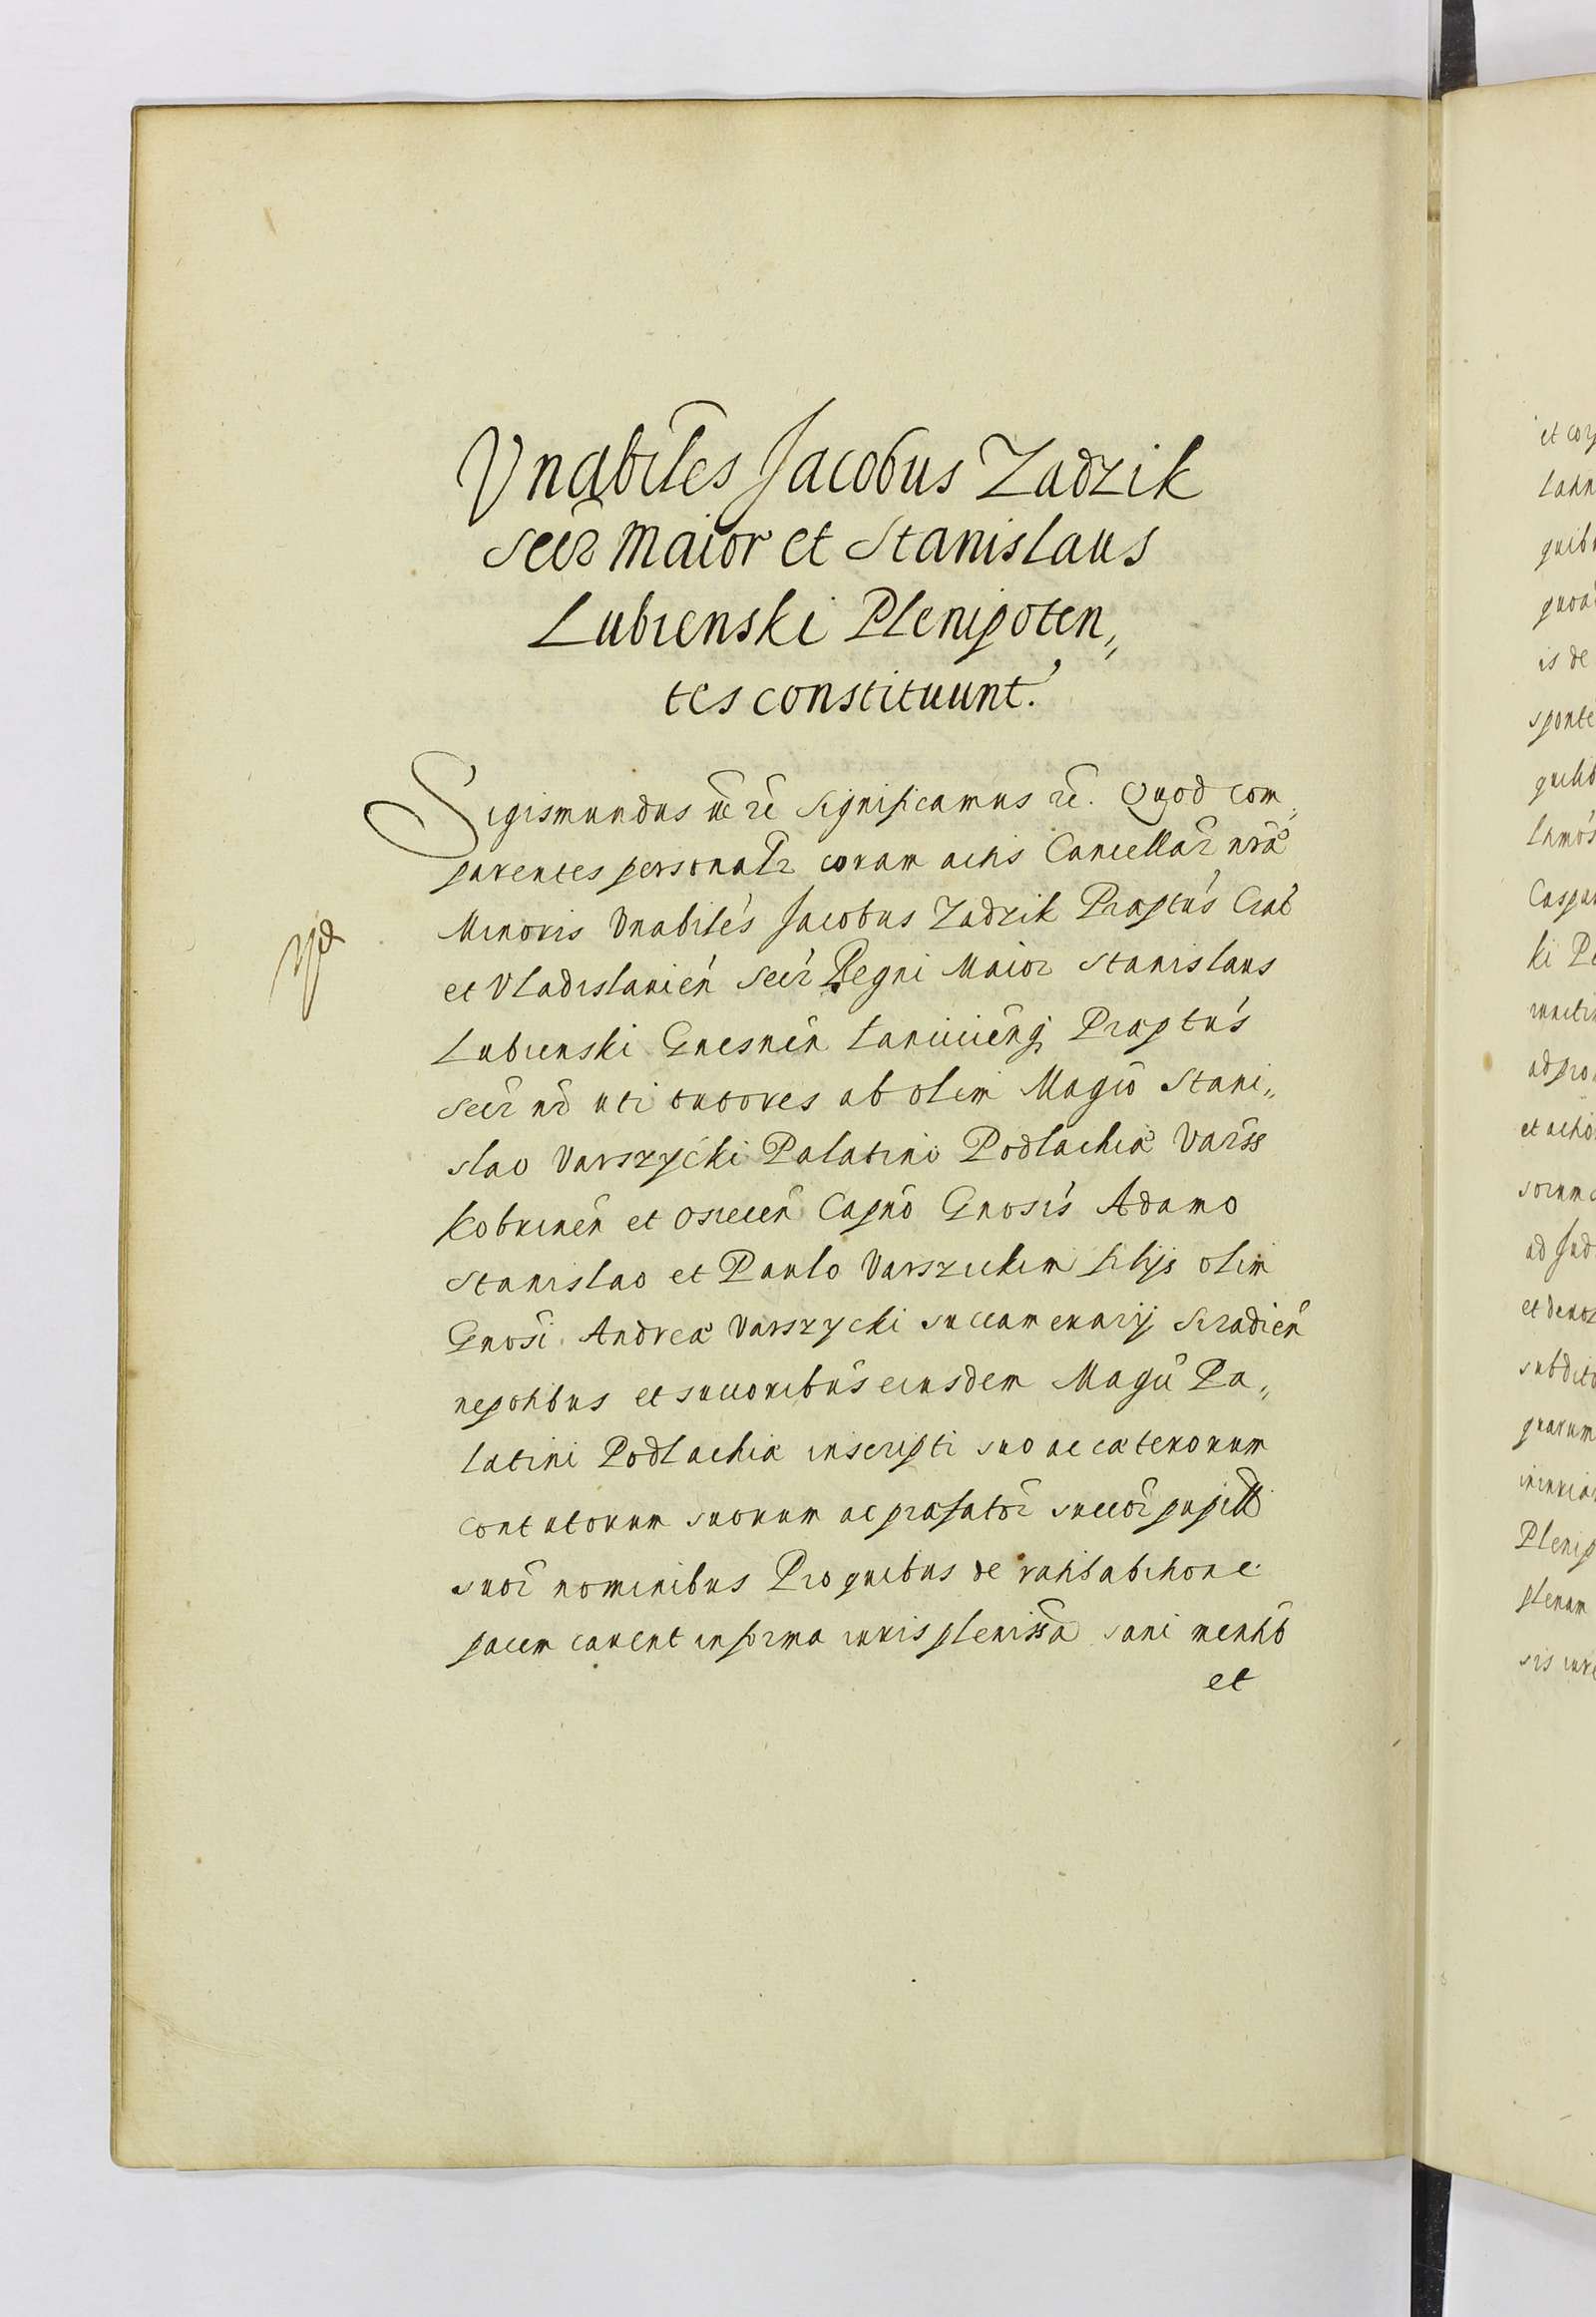 Vnabiles Jacobus Zadzik
Secr Maior et Stanislaus
Lubienski Plenipoten„
tes constituunt.
Sigismundus etc etc Significamus etc. Quod com„
parentes personalr coram actis Cancellar nrae
Minoris Vnabiles Jacobus Zadzik Praeptus Crac
et Vladislauien Secr Regni Maior Stanislaus
Lubienski Gnesnen Lanciciēnq Praeptus
Secr nr uti tutores ab olim Magco Stani„
slao Varszycki Palatino Podlachiae Varss
Kobrinen et Osiecen Capno Gnosis Adamo
Stanislao et Paulo Varszickim filijs olim
Gnosi Andreae Varszycki succamerarij Siradien
nepotibus et succoribus eiusdem Magci Pa„
latini Podlachiae inscripti suo ac caeterorum
contutorum suorum ac praefator succor pupill
suor nominibus Pro quibus de ratihabitione
pacem cauent in forma iuris plenissa sani mentib
et
et
quib
is de
sponte
Caspar
ki
ad pro
et actio
ad Jud
subdito
quarum
Plenip
plenam